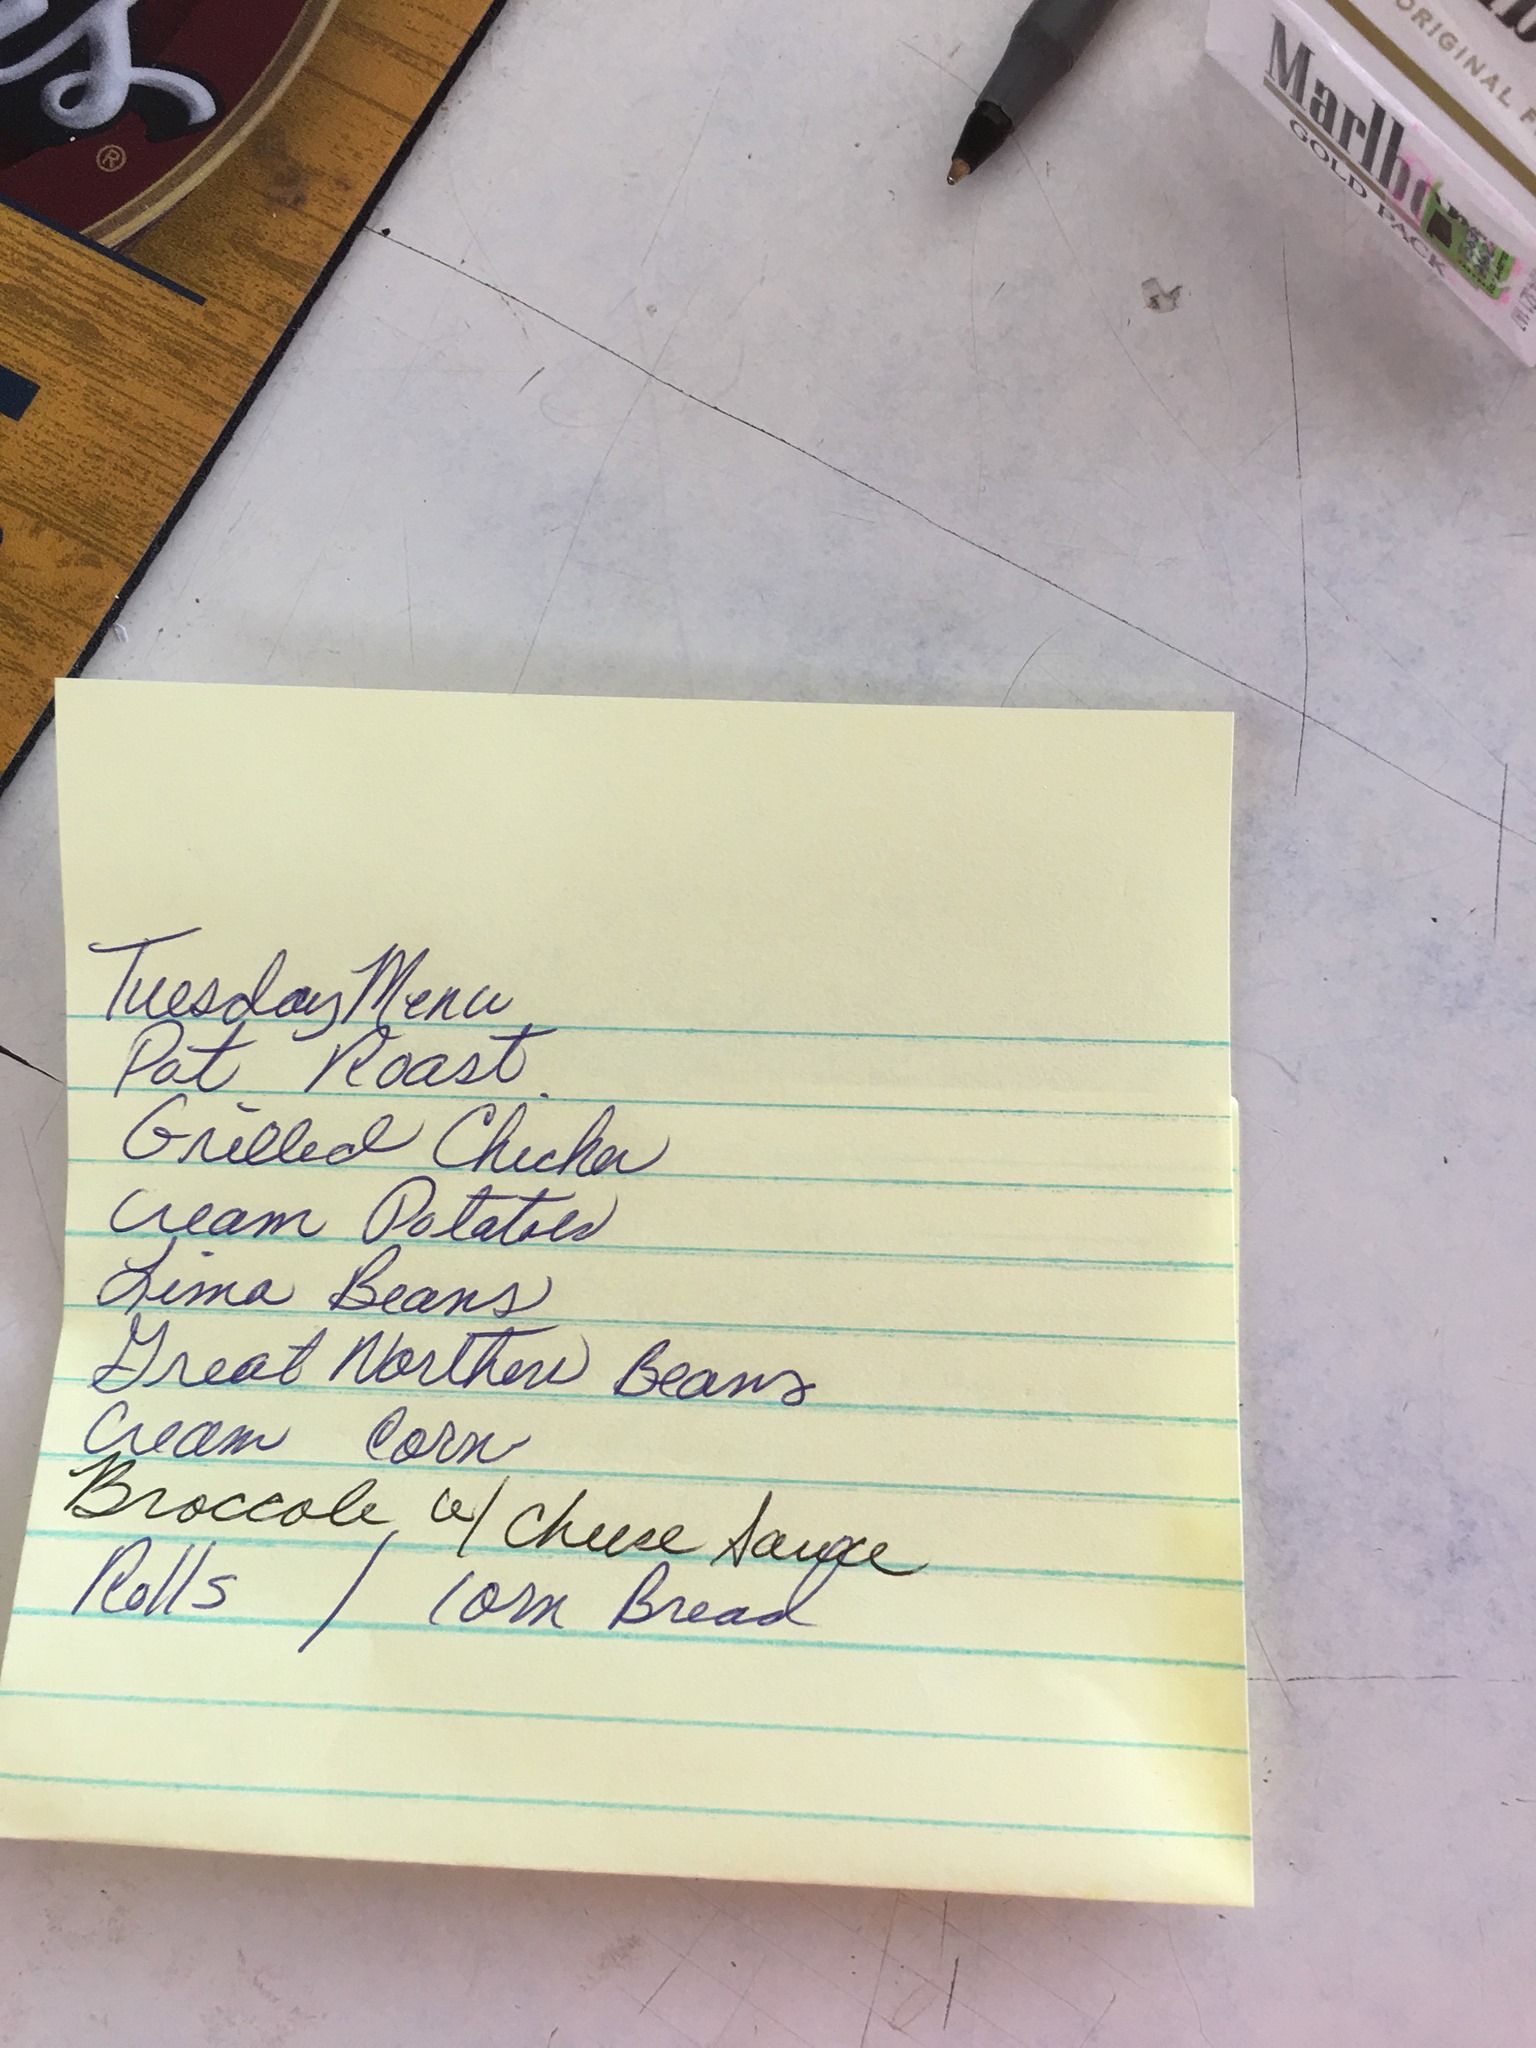 ®
Marlbo
GOLD PACK
ORIGINAL
Tuesday Menu
Pot Roast
Grilled Chicken
Cream Potatoes
Lima Beans
Great Northern Beans
Cream Corn
Broccole w/ Cheese Sauce
Rolls / Corn Bread